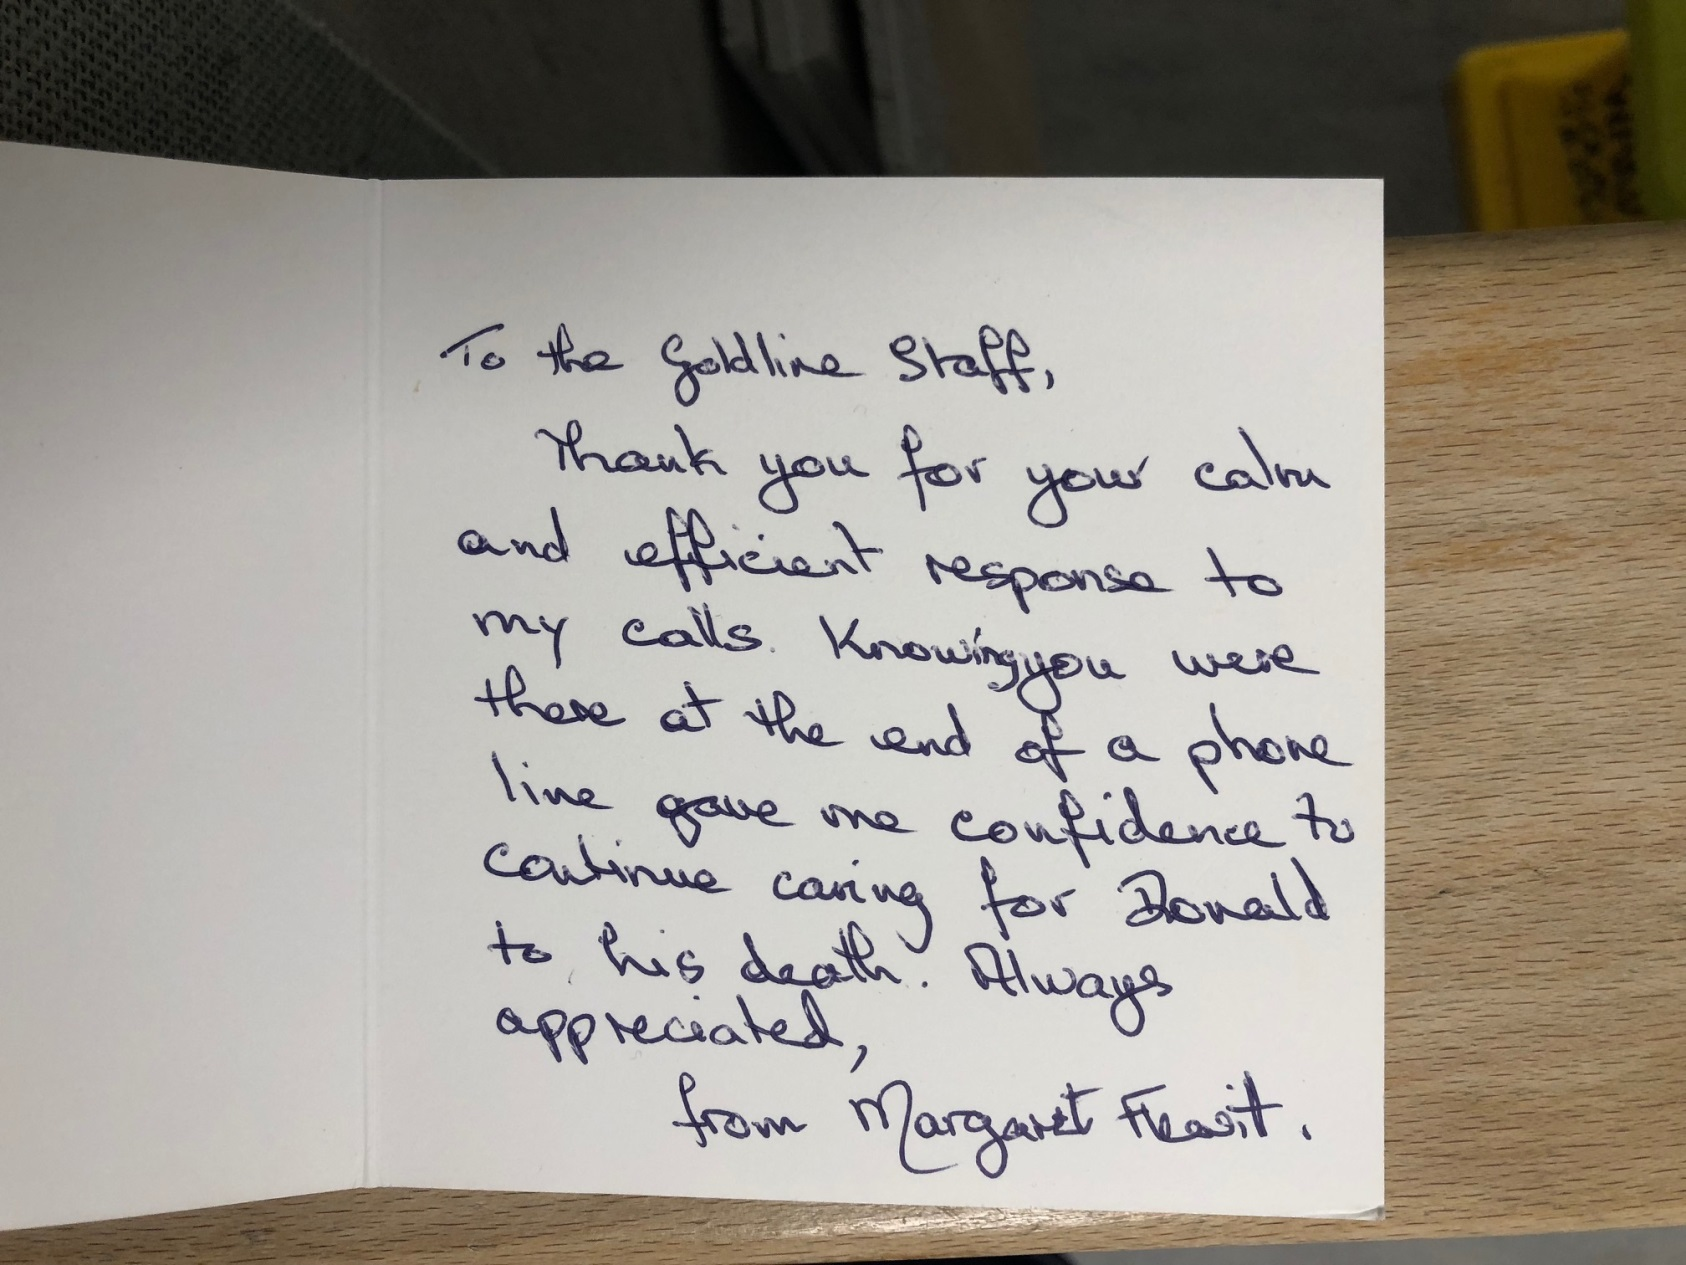 To the Goldline Staff,
Thank you for your calm
and efficient response to
my calls. Knowing you were
there at the end of a phone
line gave me confidence to
continue caring for Donald
to his death. Always
appreciated,
from Margaret